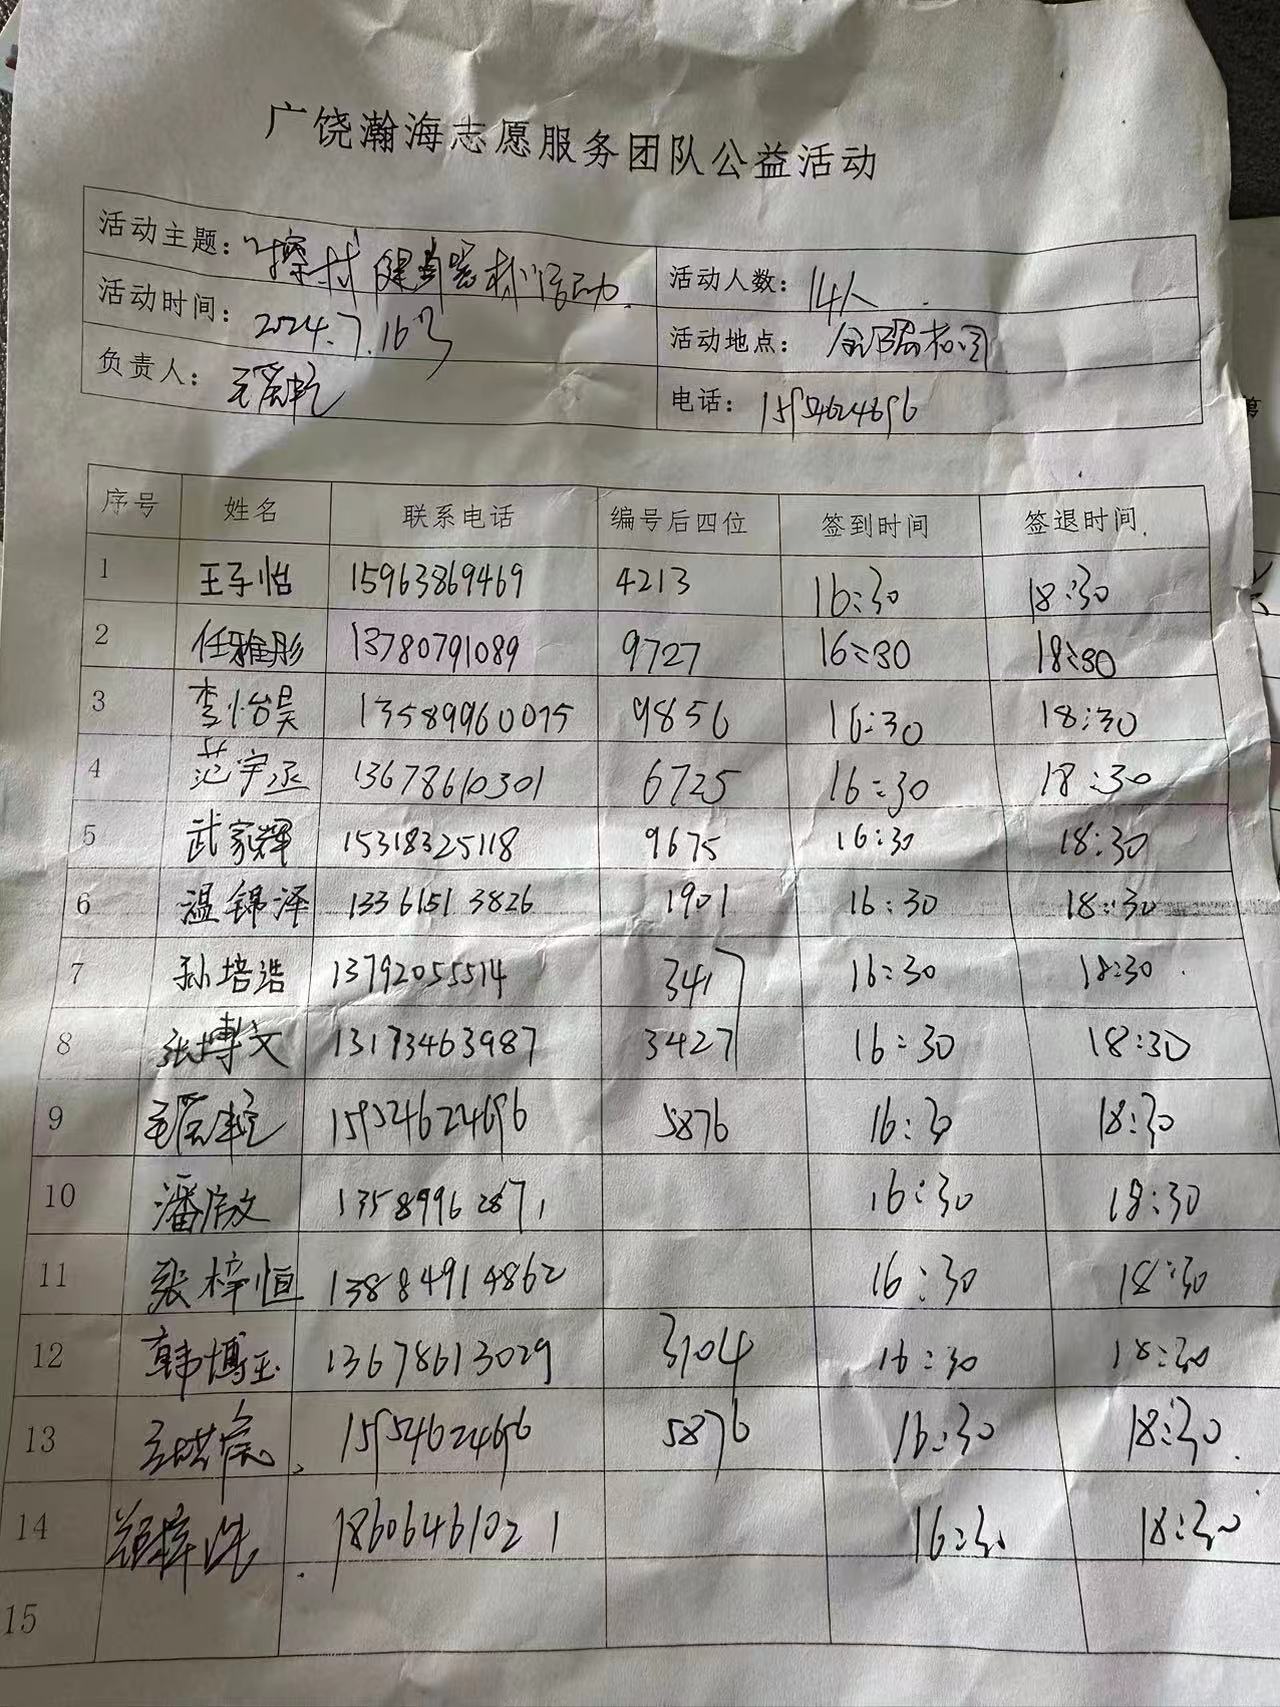 广饶瀚海志愿服务团队公益活动
活动主题： 擦拭健身器材活动 活动人数： 14人
活动时间： 2024.7.16号 活动地点：
负责人： 电话： 15954624696
序号 姓名 联系电话 编号后四位 签到时间 签退时间
1 王子怡 15963869469 4213 16:30 18:30
2 任雅彤 13780791089 9727 16:30 18:30
3 李怡昊 13589960075 9856 16:30 18:30
4 范宇丞 13678610301 6725 16:30 18:30
5 武家辉 15318325118 9675 16:30 18:30
6 温锦泽 13361513826 1901 16:30 18:30
7 孙培浩 13792055514 3417 16:30 18:30
8 张博文 13173463987 3427 16:30 18:30
9 15954624696 5876 16:30 18:30
10 潘 13589962871 16:30 18:30
11 张梓恒 13884914862 16:30 18:30
12 韩博玉 13678613029 3704 16:30 18:30
13 15954624696 5876 16:30 18:30
14 18606461021 16:30 18:30
15